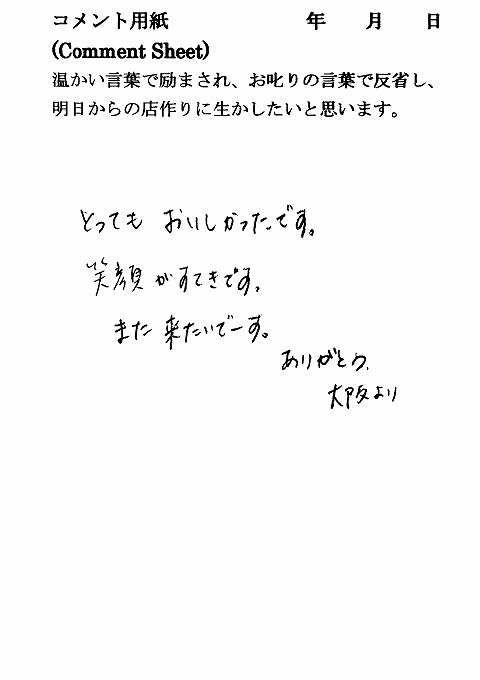 コメント用紙　　　　　　年　　月　　日
(Comment Sheet)
温かい言葉で励まされ、お叱りの言葉で反省し、
明日からの店作りに生かしたいと思います。
とっても おいしかったです。
笑顔がすてきです。
また 来たいでーす。
ありがとう.
大阪より